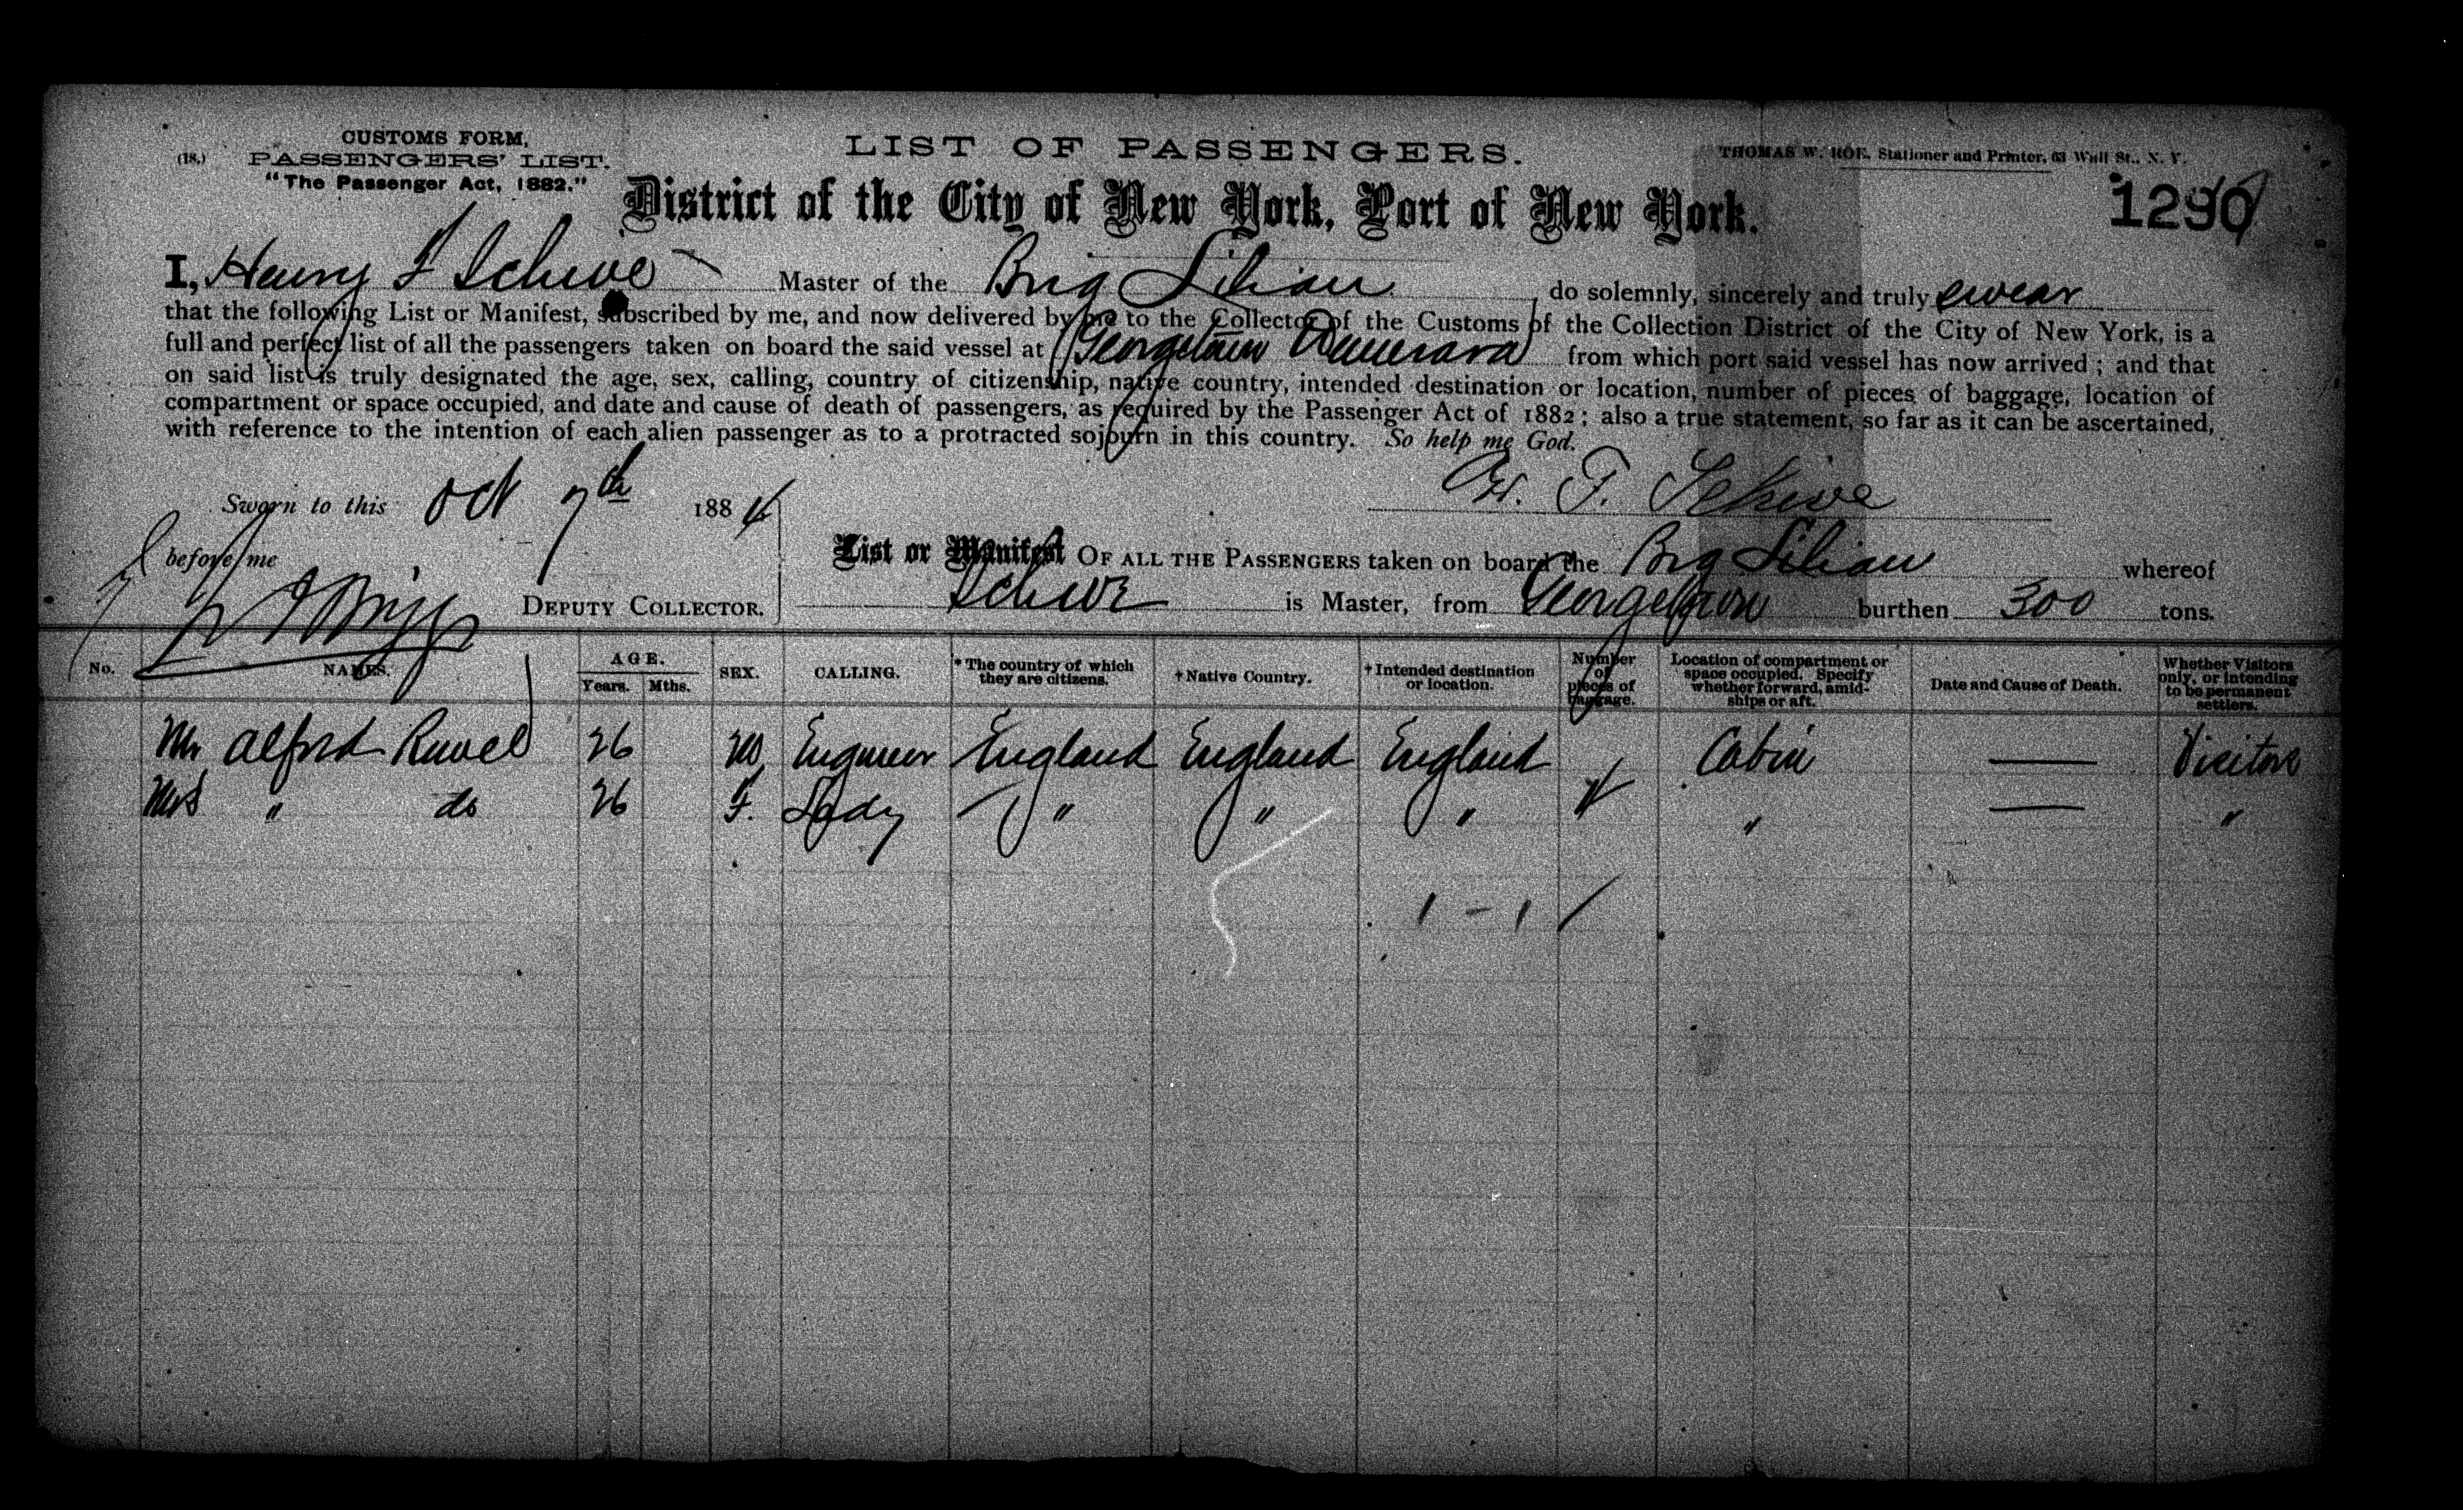 CUSTOMS FORM,
(18.) PASSENGERS' LIST.
"The Passenger Act, 1882."
LIST OF PASSENGERS.
THOMAS W. ROE, Stationer and Printer, 63 Wall St., N. Y.
District of the City of New York, Port of New York.
1290
I, Henry F Schive Master of the Brig Lilian do solemnly, sincerely and truly swear
that the following List or Manifest, subscribed by me, and now delivered by me to the Collector of the Customs of the Collection District of the City of New York, is a
full and perfect list of all the passengers taken on board the said vessel at Georgetown Demerara from which port said vessel has now arrived ; and that
on said list is truly designated the age, sex, calling, country of citizenship, native country, intended destination or location, number of pieces of baggage, location of
compartment or space occupied, and date and cause of death of passengers, as required by the Passenger Act of 1882 ; also a true statement, so far as it can be ascertained,
with reference to the intention of each alien passenger as to a protracted sojourn in this country. So help me God.
Sworn to this Oct 7th 1884
H. F. Schive
before me
DEPUTY COLLECTOR.
List or Manifest OF ALL THE PASSENGERS taken on board the Brig Lilian whereof
Schive is Master, from Georgetown burthen 300 tons.
No. NAMES. AGE. Years. Mths. SEX. CALLING. * The country of which they are citizens. † Native Country. † Intended destination or location. Number of pieces of baggage. Location of compartment or space occupied. Specify whether forward, amidships or aft. Date and Cause of Death. Whether Visitors only, or intending to be permanent settlers.
Mr Alfred Ruvel 26 M Engineer England England England Cabin — Visitors
Mrs " do 26 F. Lady " " " 4 " — "
1 - 1 /